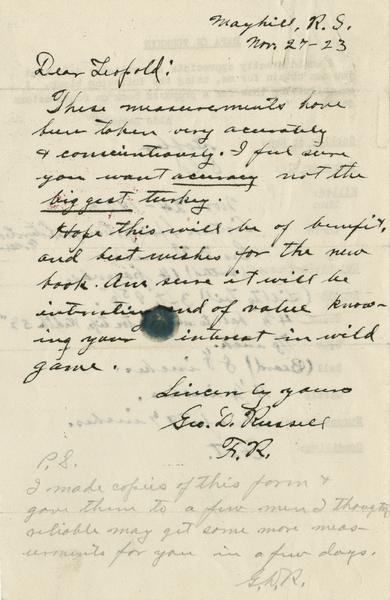 Mayhill, R. S.
Nov. 27-23
Dear Leopold:
These measurements have
been taken very accurately
& conscientiously. I feel sure
you want accuracy not the
biggest turkey.
Hope this will be of benefit,
and best wishes for the new
book. Am sure it will be
intresting and of value know-
ing your interest in wild
game.
Sincerely yours
Geo. D. Russell
F. R.
P.S.
I made copies of this form &
gave them to a few men I thought
reliable may get some more meas-
urements for you in a few days.
G.D.R.